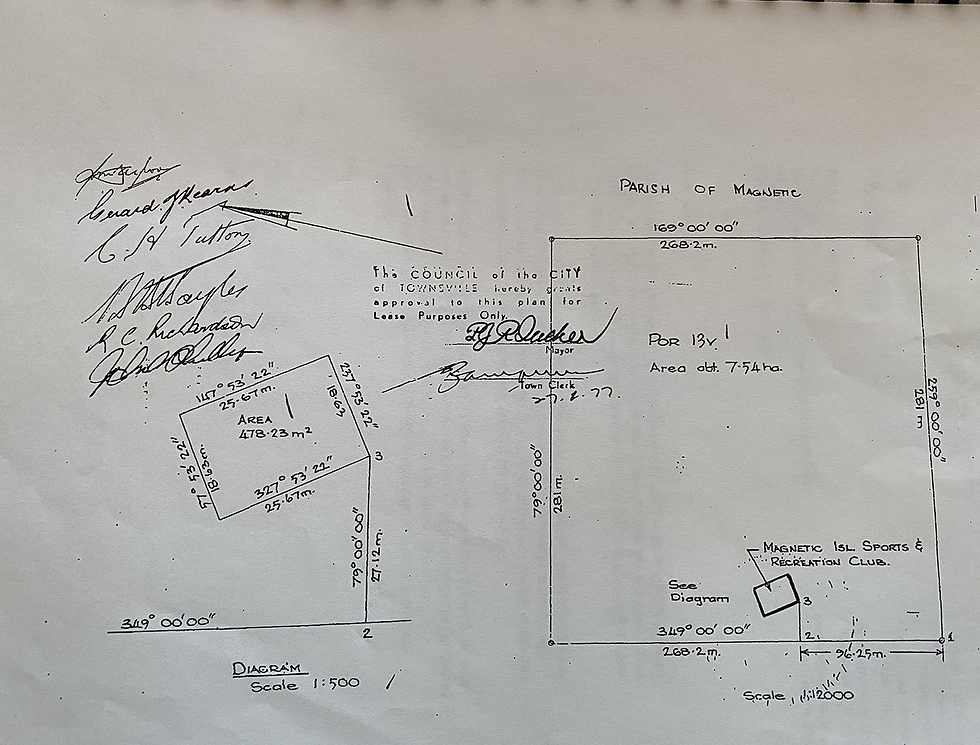 Gerard. J Kearns
C H Tutton
R C. Richardson
The COUNCIL of the CITY
of TOWNSVILLE hereby grants
approval to this plan for
Lease Purposes Only.
Mayor
Town Clerk
147° 53' 22"
25·67m.
237° 53' 22"
18·63
AREA
478·23 m²
77° 53' 22"
18·63m.
327° 53' 22"
25·67m.
3
79° 00' 00"
27·12 m.
349° 00' 00"
2
DIAGRAM
Scale 1:500
PARISH OF MAGNETIC
169° 00' 00"
268·2m.
POR 13v
Area abt. 7·54ha.
259° 00' 00"
281 m
79° 00' 00"
281m.
MAGNETIC ISL SPORTS &
RECREATION CLUB.
See
Diagram
3
349° 00' 00"
268·2m.
2
1
96·25m.
Scale 1:2000